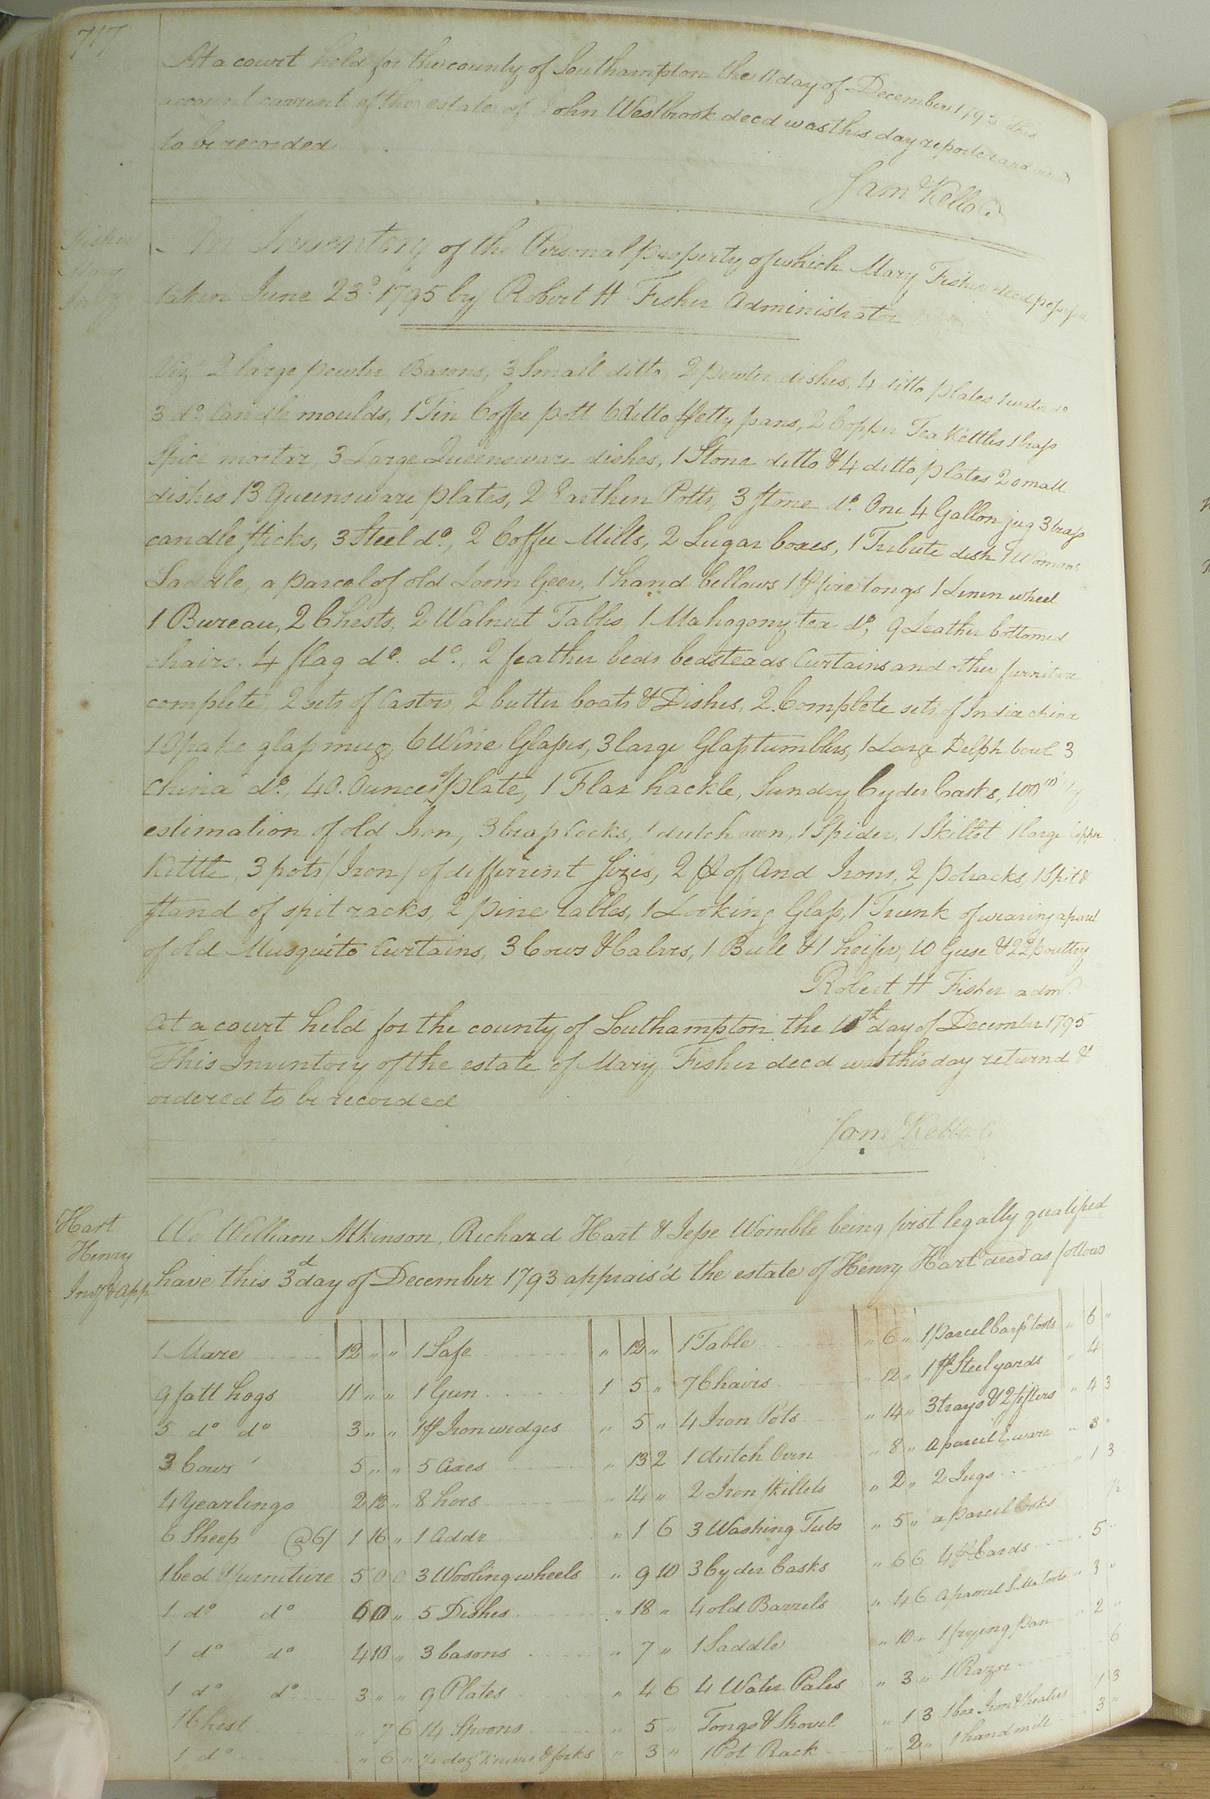 717
At a court held for the county of Southampton the 11 day of December 1795 this
account current of the estate of John Westbrook decd was this day reported and
to be recorded
Sam Kello C
Fisher
Mary
An Inventory of the Personal property of which Mary Fisher decd possess
taken June 23d 1795 by Robert H Fisher Administrator
Viz 2 large pewter Basons, 3 Small ditto, 2 pewter dishes, 4 ditto plates
3 do Candle moulds, 1 Tin Coffee pott 6 ditto petty pans, 2 Copper Tea Kettles 1 brass
Spice mortar, 3 Large Queensware dishes, 1 Stone ditto & 4 ditto plates 2 small
dishes 13 Queensware plates, 2 Earthen Potts, 3 stone do. One 4 Gallon jug 3 brass
candlesticks, 3 Steel do., 2 Coffee Mills, 2 Sugar boxes, 1 Tribute dish 1 Womans
Saddle, a parcel of old Loom Geer, 1 hand bellows 1 pr fire tongs 1 Linen wheel
1 Bureau, 2 Chests, 2 Walnut Tables, 1 Mahogony tea do, 9 Leather bottomed
chairs, 4 flag do. do., 2 feather beds bedsteads Curtains and other furniture
complete, 2 sets of Castors, 2 butter boats & Dishes, 2 Complete sets of India china
1 Opake glass mug, 6 Wine Glasses, 3 large Glass tumblers, 1 Large Delph bowl 3
China do., 40. Ounces of plate, 1 Flax hackle, Sundry Cyder Casks, 100 by
estimation of old Iron, 3 brass Cocks, 1 dutch oven, 1 Spider, 1 Skillet 1 large Copper
Kettle, 3 pots (Iron) of different sizes, 2 pr of And Irons, 2 potracks, 1 Spit &
stand of spit racks, 2 pine tables, 1 Looking Glass, 1 Trunk of wearing aparel
of old Musquito Curtains, 3 Cows & Calves, 1 Bull & 1 heifer, 10 Geese & 22 poultry
Robert H Fisher admr
At a court held for the county of Southampton the 10th day of December 1795
This Inventory of the estate of Mary Fisher decd was this day returnd &
ordered to be recorded
Sam Kello C
Hart
Henry
Invy & App
We William Atkinson, Richard Hart & Jesse Womble being first legally qualified
have this 3d day of December 1793 apprais'd the estate of Henry Hart decd as follows
1 Mare 12 " " 1 Safe " 12 " 1 Table " 6 " 1 parcel Carps tools " 6 "
9 fatt hogs 11 " " 1 Gun 1 5 " 7 Chairs " 12 " 1 pr Steelyards " 4
5 do do 3 " " 1 pr Iron wedges " 5 " 4 Iron Pots " 14 " 3 trays & 2 sifters " 4 3
3 Cows 5 " " 5 Axes " 13 2 1 dutch Oven " 8 " a parcel E. ware " 3 "
4 Yearlings 2 12 " 8 hoes " 14 " 2 Iron Skillets " 2 " 2 Jugs " 1 3
6 Sheep @ 6/ 1 16 " 1 Addz " 1 6 3 Washing Tubs " 5 " a parcel Books
1 bed & furniture 5 0 0 3 Wooling wheels " 9 10 3 Cyder Casks " 6 6 4 pr Cards 5 "
1 do do 6 10 " 5 Dishes " 18 " 4 old Barrels " 4 6 a parcel S. Ma tools " 3 "
1 do do 4 10 " 3 basons " 7 " 1 Saddle " 10 " 1 frying Pan " 2 "
1 do do 3 " " 9 Plates " 4 6 4 Water Pales " 3 " 1 Razor 6
1 Chest " 7 6 14 Spoons " 5 " Tongs & Shovel " 1 3 1 box Iron & heaters " 1 3
1 do " 6 " ½ doz knives & forks " 3 " 1 Pot Rack " 2 " 1 hand mill 3 "